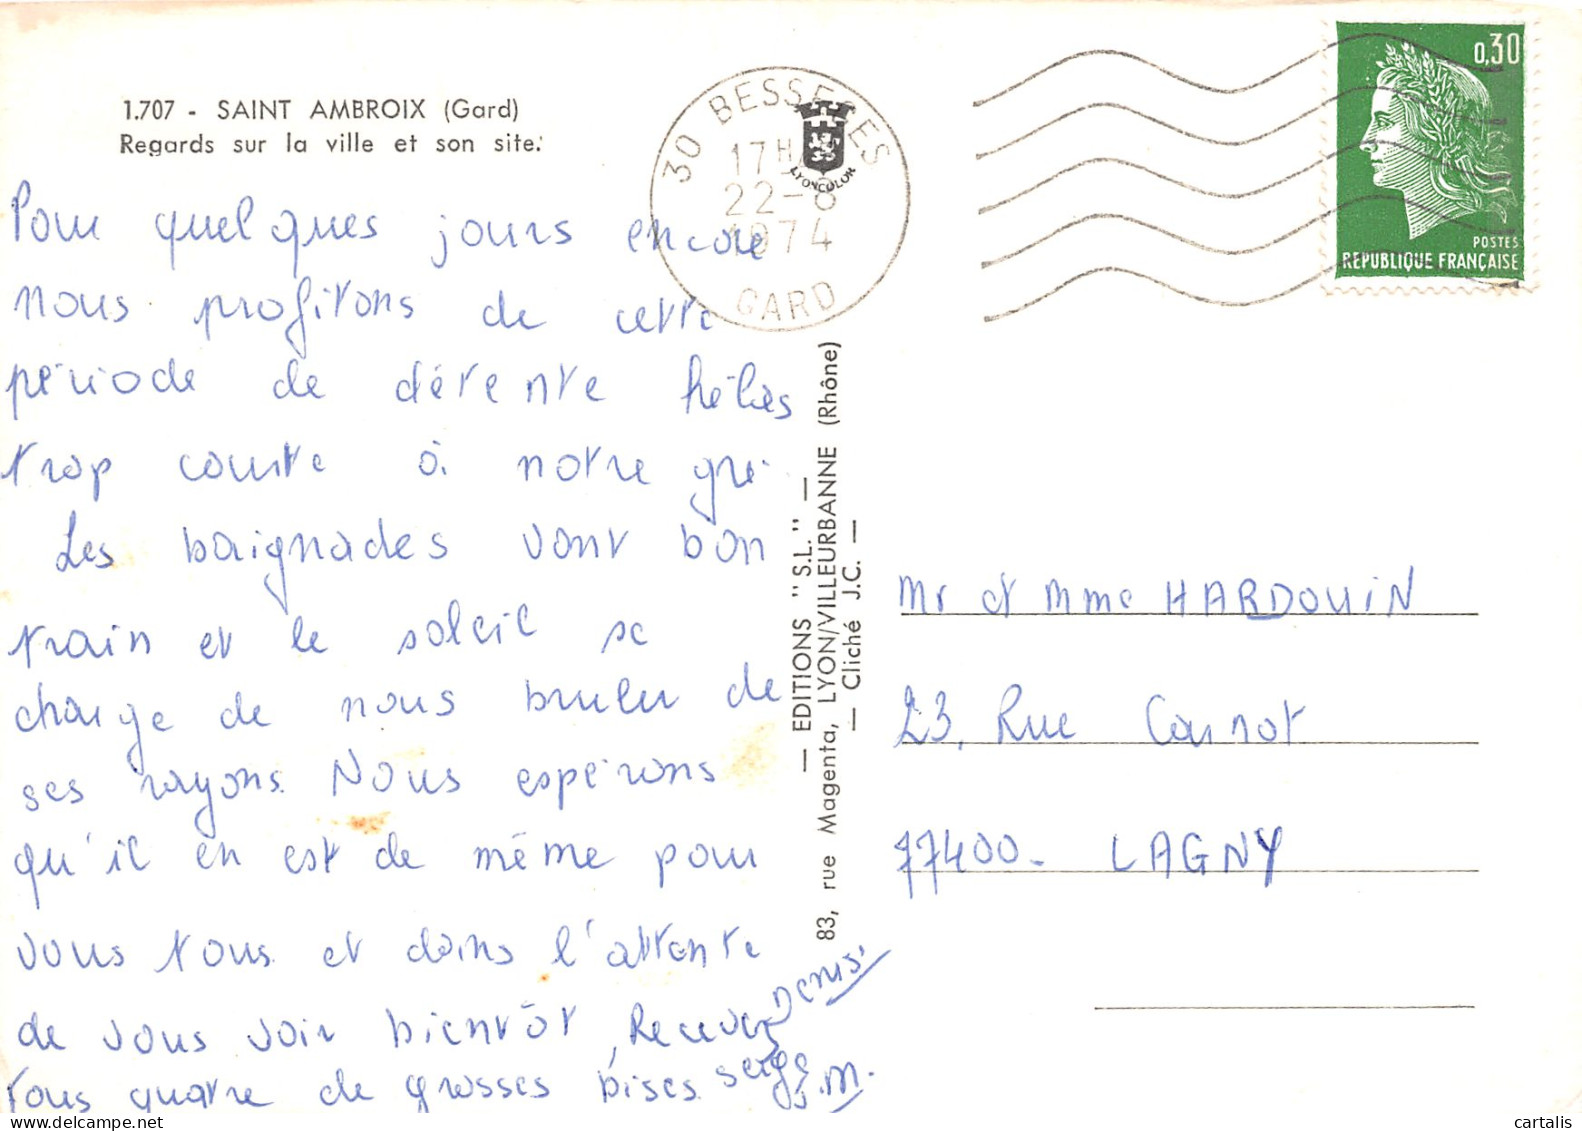 1.707 - SAINT AMBROIX (Gard)
Regards sur la ville et son site.
Pour quelques jours encore
nous profitons de cette
période de détente hélas
trop courte à notre gré.
Les baignades vont bon
train et le soleil se
charge de nous bruler de
ses rayons. Nous espérons
qu'il en est de même pour
vous tous et dans l'attente
de vous voir bientôt, Recevez
tous quatre de grosses bises
Denis.
Serge
J.M.
EDITIONS "S.L." —
83, rue Magenta, LYON/VILLEURBANNE (Rhône)
— Cliché J.C. —
LYONCOLOR
30 BESSEGES
17H
22-8
1974
GARD
0,30
POSTES
REPUBLIQUE FRANÇAISE
Mr et Mme HARDOUIN
23, Rue Carnot
77400 - LAGNY
cartalis